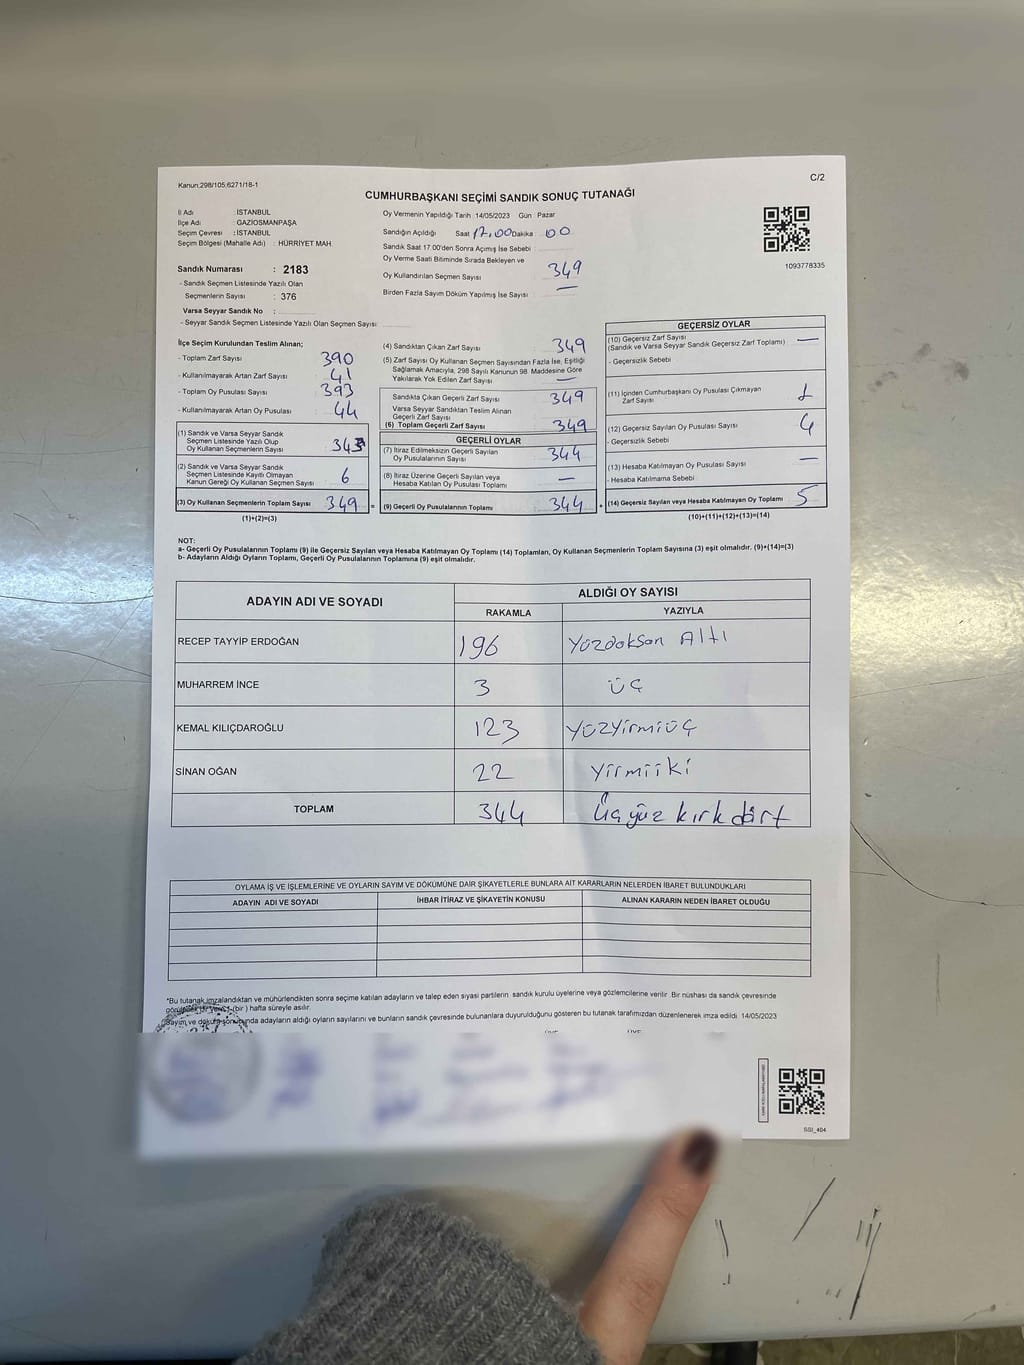 Kanun;298/105,6271/18-1
C/2
CUMHURBAŞKANI SEÇİMİ SANDIK SONUÇ TUTANAĞI
İl Adı : İSTANBUL
İlçe Adı : GAZİOSMANPAŞA
Seçim Çevresi : İSTANBUL
Seçim Bölgesi (Mahalle Adı) : HÜRRİYET MAH.
Sandık Numarası : 2183
- Sandık Seçmen Listesinde Yazılı Olan
Seçmenlerin Sayısı : 376
Varsa Seyyar Sandık No :
- Seyyar Sandık Seçmen Listesinde Yazılı Olan Seçmen Sayısı
Oy Vermenin Yapıldığı Tarih 14/05/2023 Gün Pazar
Sandığın Açıldığı Saat 17.00 Dakika 00
Sandık Saat 17:00'den Sonra Açımış İse Sebebi
Oy Verme Saati Bitiminde Sırada Bekleyen ve
Oy Kullandırılan Seçmen Sayısı 349
Birden Fazla Sayım Döküm Yapılmış İse Sayısı —
1093778335
İlçe Seçim Kurulundan Teslim Alınan;
- Toplam Zarf Sayısı 390
- Kullanılmayarak Artan Zarf Sayısı 41
- Toplam Oy Pusulası Sayısı 393
- Kullanılmayarak Artan Oy Pusulası 44
(1) Sandık ve Varsa Seyyar Sandık
Seçmen Listesinde Yazılı Olup
Oy Kullanan Seçmenlerin Sayısı 343
(2) Sandık ve Varsa Seyyar Sandık
Seçmen Listesinde Kayıtlı Olmayan
Kanun Gereği Oy Kullanan Seçmen Sayısı 6
(3) Oy Kullanan Seçmenlerin Toplam Sayısı 349 =
(1)+(2)=(3)
(4) Sandıktan Çıkan Zarf Sayısı 349
(5) Zarf Sayısı Oy Kullanan Seçmen Sayısından Fazla İse, Eşitliği
Sağlamak Amacıyla, 298 Sayılı Kanunun 98. Maddesine Göre
Yakılarak Yok Edilen Zarf Sayısı —
Sandıkta Çıkan Geçerli Zarf Sayısı 349
Varsa Seyyar Sandıktan Teslim Alınan
Geçerli Zarf Sayısı
(6) Toplam Geçerli Zarf Sayısı 349
GEÇERLİ OYLAR
(7) İtiraz Edilmeksizin Geçerli Sayılan
Oy Pusulalarının Sayısı 344
(8) İtiraz Üzerine Geçerli Sayılan veya
Hesaba Katılan Oy Pusulası Toplamı —
(9) Geçerli Oy Pusulalarının Toplamı 344 +
GEÇERSİZ OYLAR
(10) Geçersiz Zarf Sayısı
(Sandık ve Varsa Seyyar Sandık Geçersiz Zarf Toplamı) —
- Geçersizlik Sebebi
(11) İçinden Cumhurbaşkanı Oy Pusulası Çıkmayan
Zarf Sayısı 1
(12) Geçersiz Sayılan Oy Pusulası Sayısı 4
- Geçersizlik Sebebi
(13) Hesaba Katılmayan Oy Pusulası Sayısı —
- Hesaba Katılmama Sebebi
(14) Geçersiz Sayılan veya Hesaba Katılmayan Oy Toplamı 5
(10)+(11)+(12)+(13)=(14)
NOT:
a- Geçerli Oy Pusulalarının Toplamı (9) ile Geçersiz Sayılan veya Hesaba Katılmayan Oy Toplamı (14) Toplamları, Oy Kullanan Seçmenlerin Toplam Sayısına (3) eşit olmalıdır. (9)+(14)=(3)
b- Adayların Aldığı Oyların Toplamı, Geçerli Oy Pusulalarının Toplamına (9) eşit olmalıdır.
ADAYIN ADI VE SOYADI ALDIĞI OY SAYISI
RAKAMLA YAZIYLA
RECEP TAYYİP ERDOĞAN 196 Yüzdoksan Altı
MUHARREM İNCE 3 ÜÇ
KEMAL KILIÇDAROĞLU 123 Yüzyirmiüç
SİNAN OĞAN 22 Yirmiiki
TOPLAM 344 Üçyüz kırk dört
OYLAMA İŞ VE İŞLEMLERİNE VE OYLARIN SAYIM VE DÖKÜMÜNE DAİR ŞİKAYETLERLE BUNLARA AİT KARARLARIN NELERDEN İBARET BULUNDUKLARI
ADAYIN ADI VE SOYADI İHBAR İTİRAZ VE ŞİKAYETİN KONUSU ALINAN KARARIN NEDEN İBARET OLDUĞU
*Bu tutanak imzalandıktan ve mühürlendikten sonra seçime katılan adayların ve talep eden siyasi partilerin sandık kurulu üyelerine veya gözlemcilerine verilir. Bir nüshası da sandık çevresinde
hafta süreyle asılır.
Sayım ve döküm sonucunda adayların aldığı oyların sayılarını ve bunların sandık çevresinde bulunanlara duyurulduğunu gösteren bu tutanak tarafımızdan düzenlenerek imza edildi. 14/05/2023
SSI_404